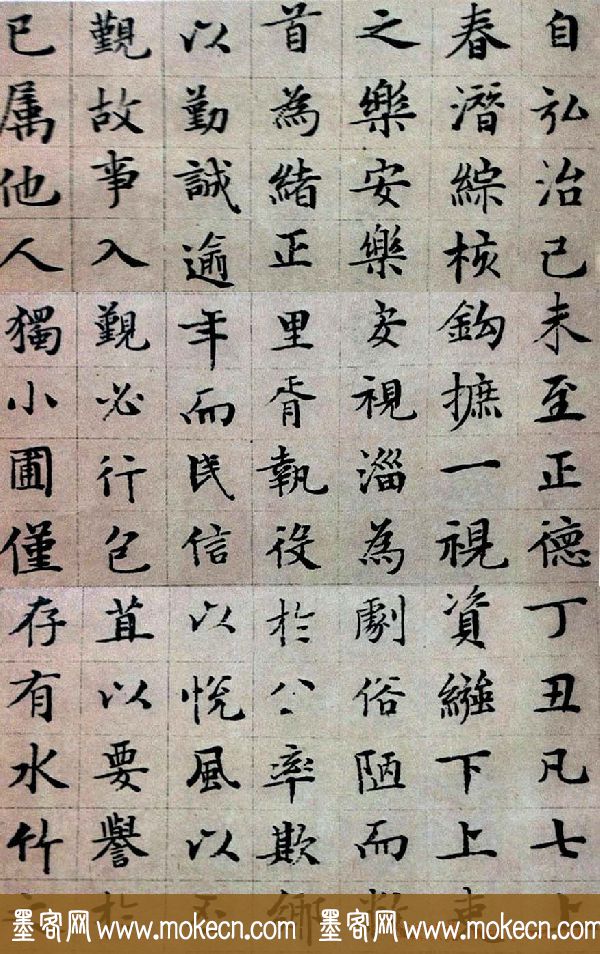 自弘治己未至正德丁丑凡七上
春潛綜核鈎摭一視資繼下上克
之樂安樂安視淄為劇俗陋而
首為緒正里胥執役於公率欺鄉
以勤誠逾年而民信以悅風以
觀故事入覲必行包苴以要譽於
已属他人獨小圃僅存有水竹
墨客网 www.mokecn.com 墨客网 www.mokecn.com